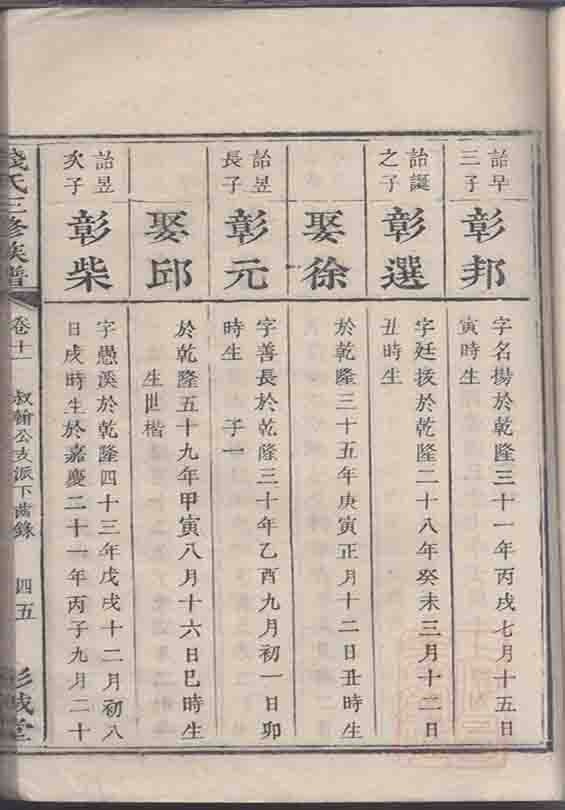 詒早
三子
彰邦
字名揚於乾隆三十一年丙戌七月十五日
寅時生
詒誕
之子
彰選
字廷拔於乾隆二十八年癸未三月十二日
丑時生
娶徐
於乾隆三十五年庚寅正月十二日丑時生
詒昱
長子
彰元
字善長於乾隆三十年乙酉九月初一日卯
時生 子一
娶邱
於乾隆五十九年甲寅八月十六日巳時生
生世楷
詒昱
次子
彰柴
字愚溪於乾隆四十三年戊戌十二月初八
日戌時生於嘉慶二十一年丙子九月二十
錢氏三修族譜
卷十一
叔
公支派下齒錄
四五
彭城堂